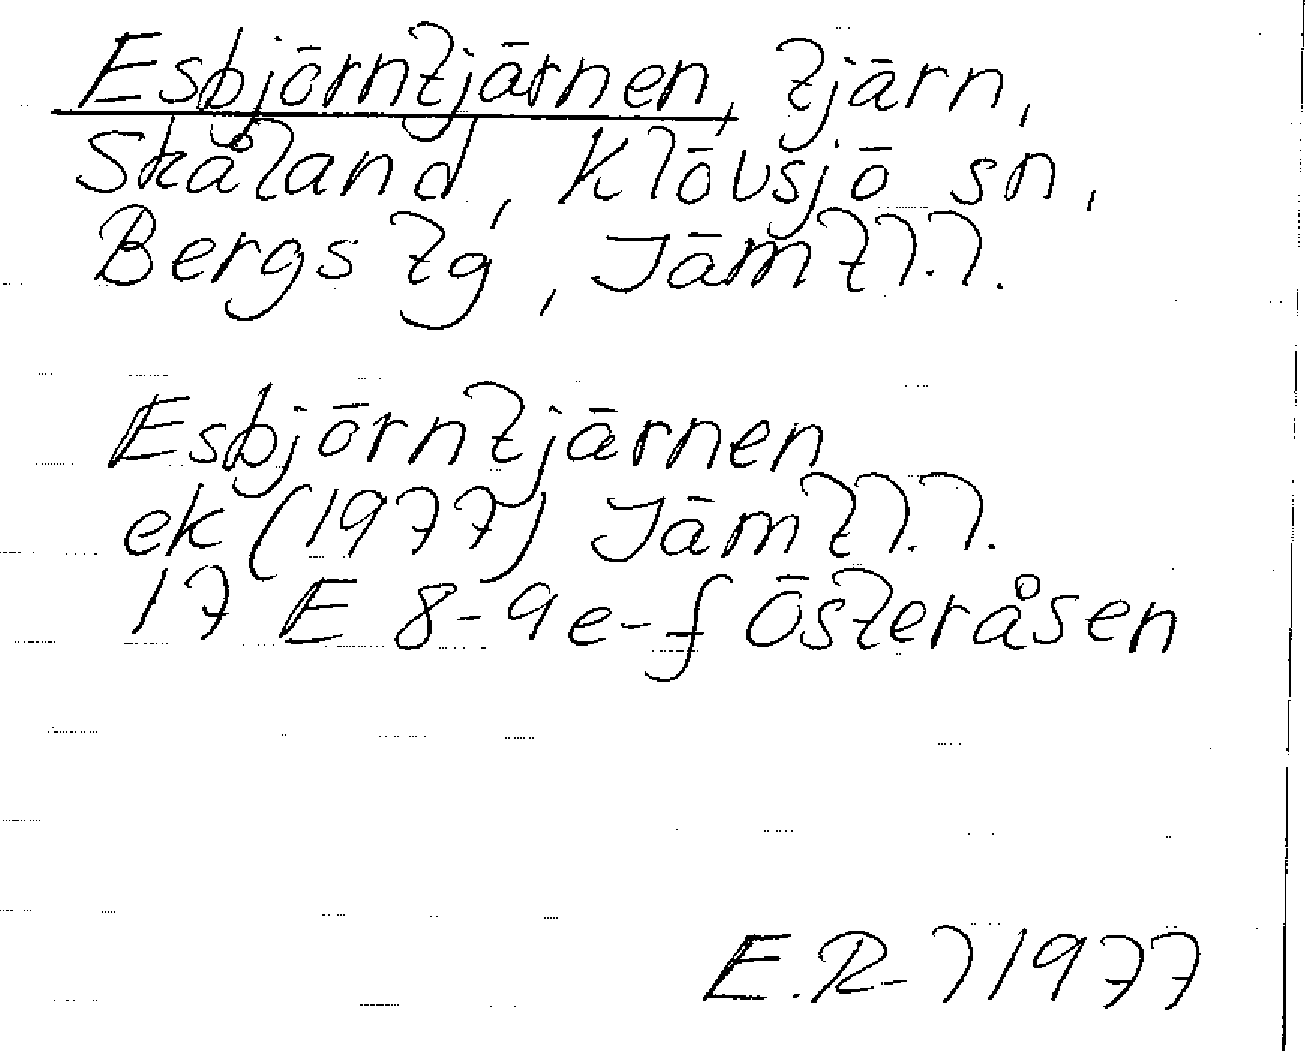 Esbjörntjärnen, tjärn,
Skåland, Klövsjö sn,
Bergs tg, Jämtl.l.
Esbjörntjärnen
ek (1977) Jämtl.l.
17 E 8-9 e-f Österåsen
E.R-l 1977